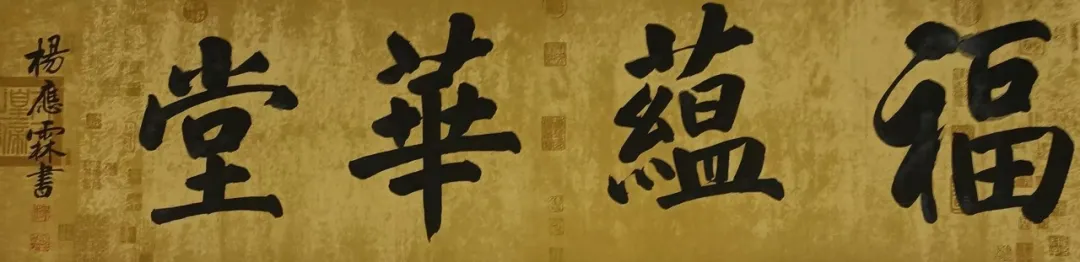 福蘊華堂
楊應霖書